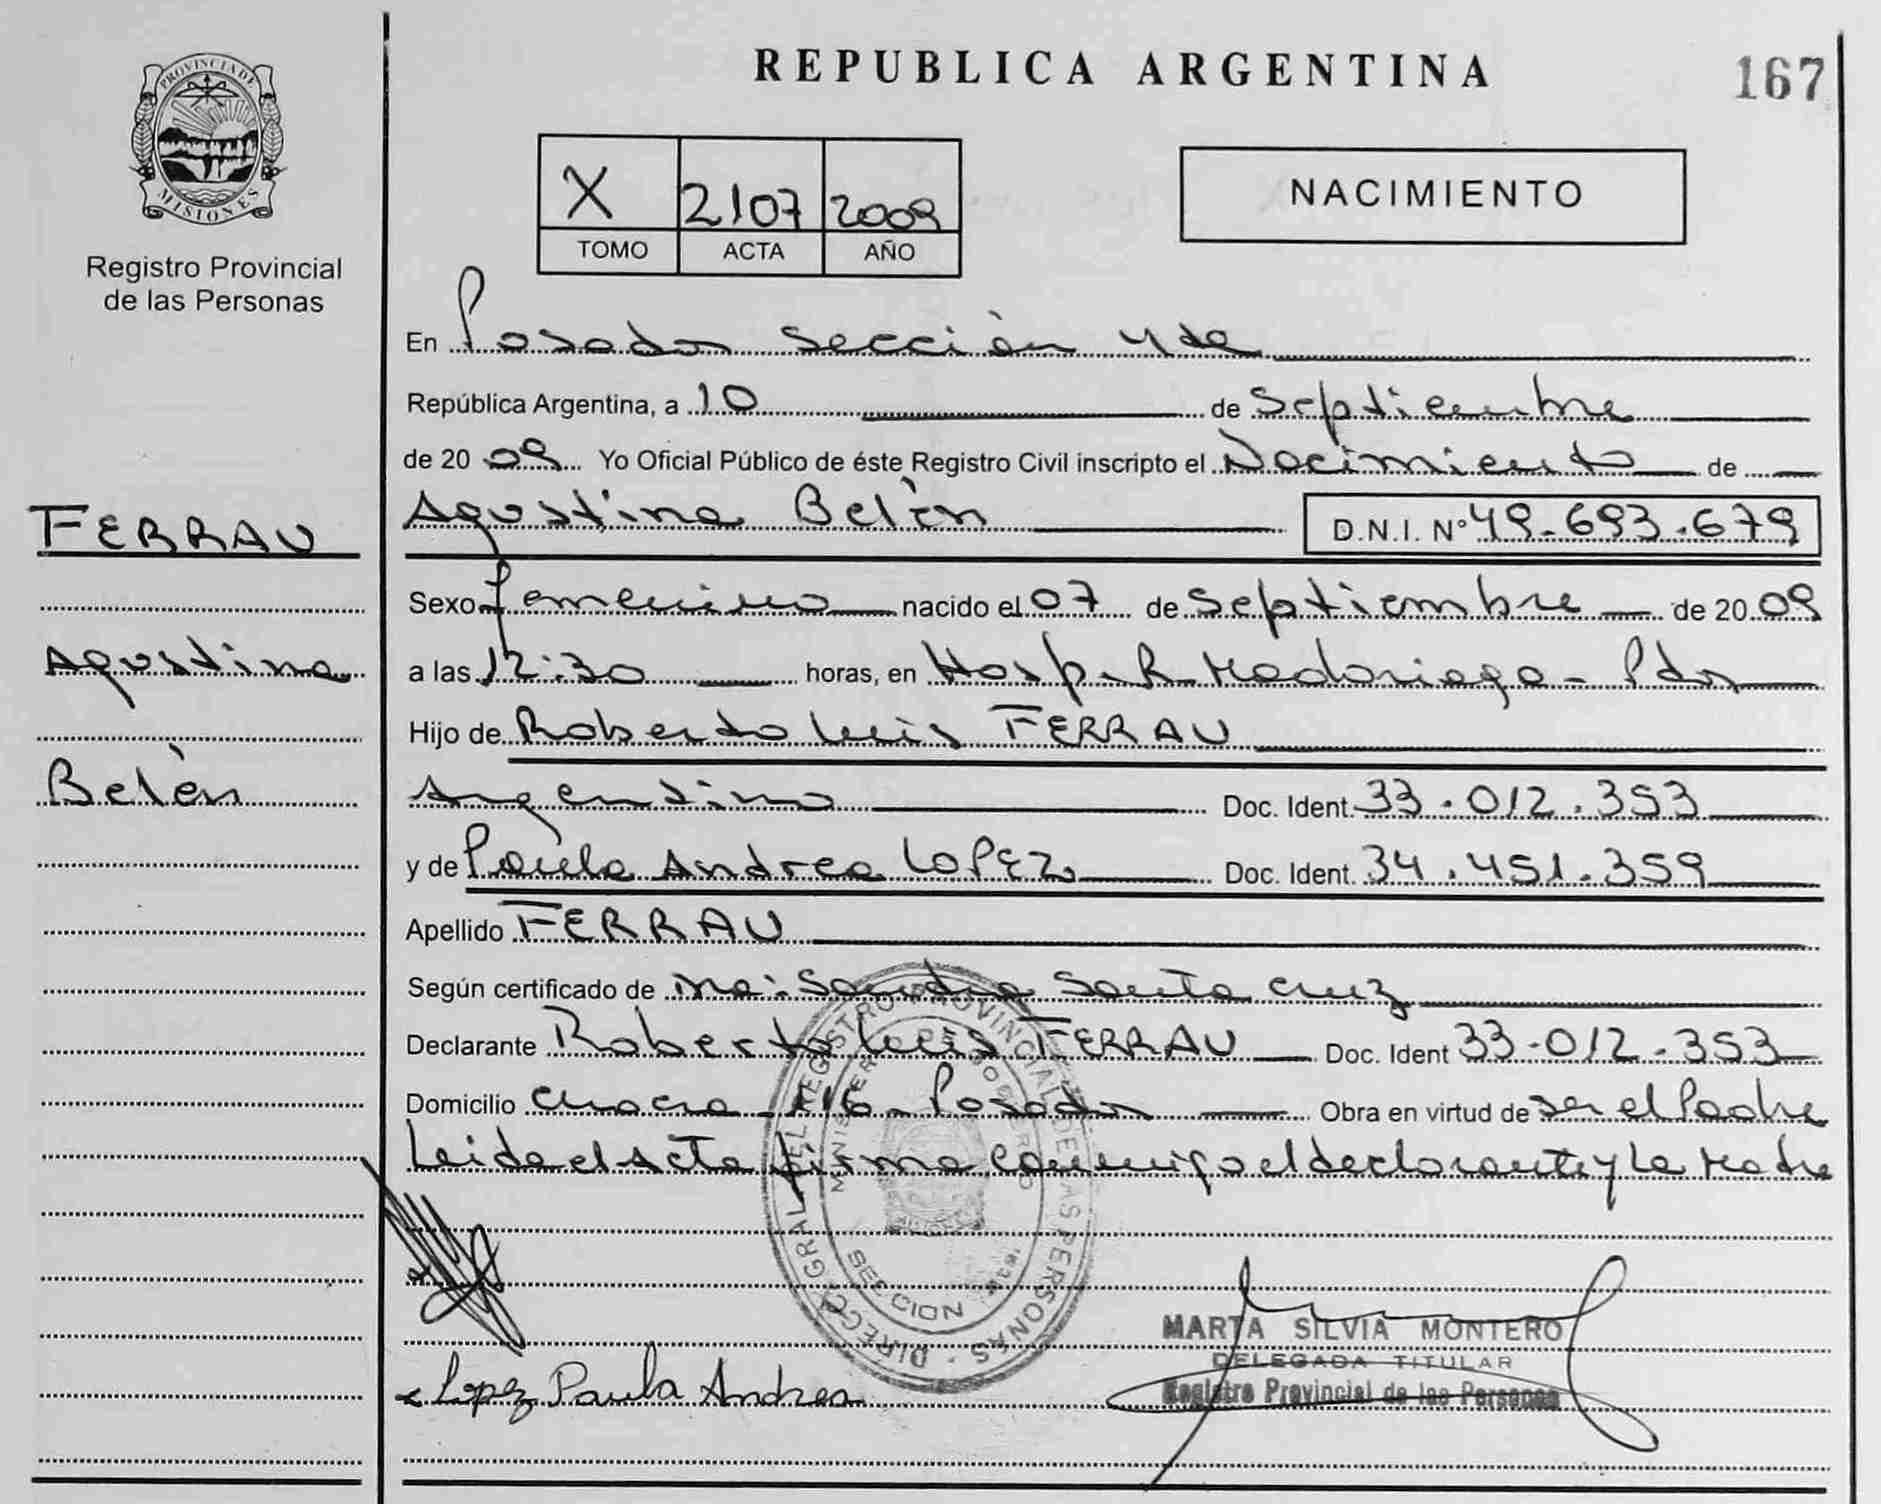 REPUBLICA ARGENTINA
167
PROVINCIA DE
MISIONES
Registro Provincial
de las Personas
X 2107 2009
TOMO ACTA AÑO
NACIMIENTO
En Posadas Sección 4ta
República Argentina, a 10 de Septiembre
de 2009 Yo Oficial Público de éste Registro Civil inscripto el Nacimiento de
FERRAU
Agustina Belén D.N.I. N° 49.693.679
Sexo femenino nacido el 07 de Septiembre de 2009
Agustina
a las 12:30 horas, en Hosp. R. Madariaga - Pdas
Hijo de Roberto Luis FERRAU
Belén
Argentino Doc. Ident. 33.012.353
y de Paula Andrea LOPEZ Doc. Ident. 34.451.359
Apellido FERRAU
Según certificado de Sandra Santa Cruz
Declarante Roberto Luis FERRAU Doc. Ident 33-012.353
Domicilio Chacra 116 - Posadas Obra en virtud de ser el Padre
Leida el Acta firma conmigo el declarante y la Madre
DIRECC. GRAL. DEL REGISTRO PROVINCIAL DE LAS PERSONAS
SECCION
MARTA SILVIA MONTERO
DELEGADA TITULAR
Registro Provincial de las Personas
Lopez Paula Andrea